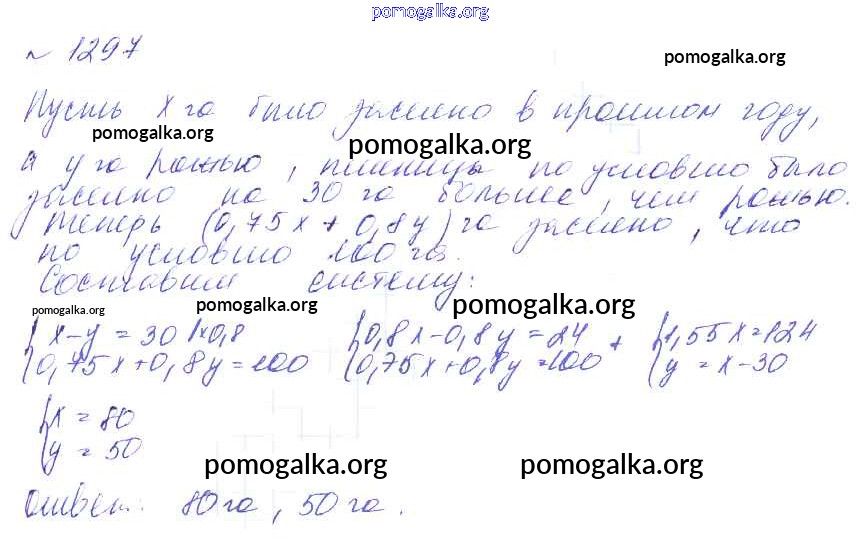 pomogalka.org
№ 1297
pomogalka.org
Пусть x га было засеяно в прошлом году,
pomogalka.org pomogalka.org
а y га рожью, пшеницы по условию было
засеяно на 30 га больше, чем рожью.
Теперь (0,75x + 0,8y) га засеяно, что
по условию 100 га.
Составим систему:
pomogalka.org pomogalka.org pomogalka.org
{x-y = 30 |×0,8 {0,8x-0,8y = 24 + {1,55x=124
{0,75x+0,8y=100 {0,75x+0,8y=100 {y = x-30
{x = 80
{y = 50
pomogalka.org pomogalka.org
Ответ: 80 га, 50 га.